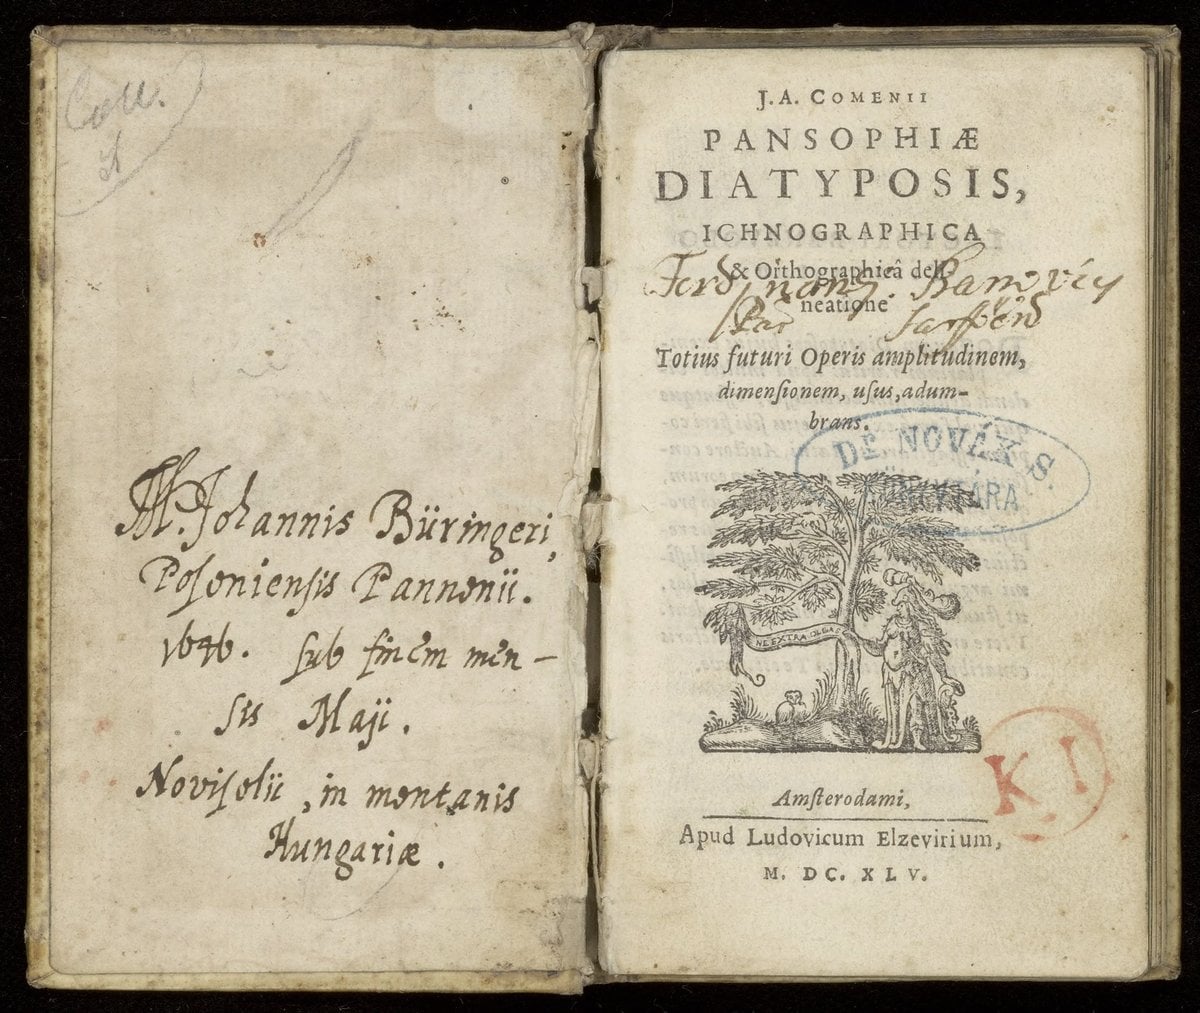 Coll.
M. Johannis Büringeri,
Poſoniensis Pannonii.
1646. ſub finem men-
sis Maji.
Noviſolii, in montanis
Hungariæ.
J. A. COMENII
PANSOPHIÆ
DIATYPOSIS,
ICHNOGRAPHICA
& Orthographicâ deli-
neatione
Totius futuri Operis amplitudinem,
dimenſionem, uſus, adum-
brans.
Dr. NOVÁK S.
KÖNYVTÁRA
NE EXTRA OLEAS
K I
Amſterodami,
Apud Ludovicum Elzevirium,
M. DC. XLV.